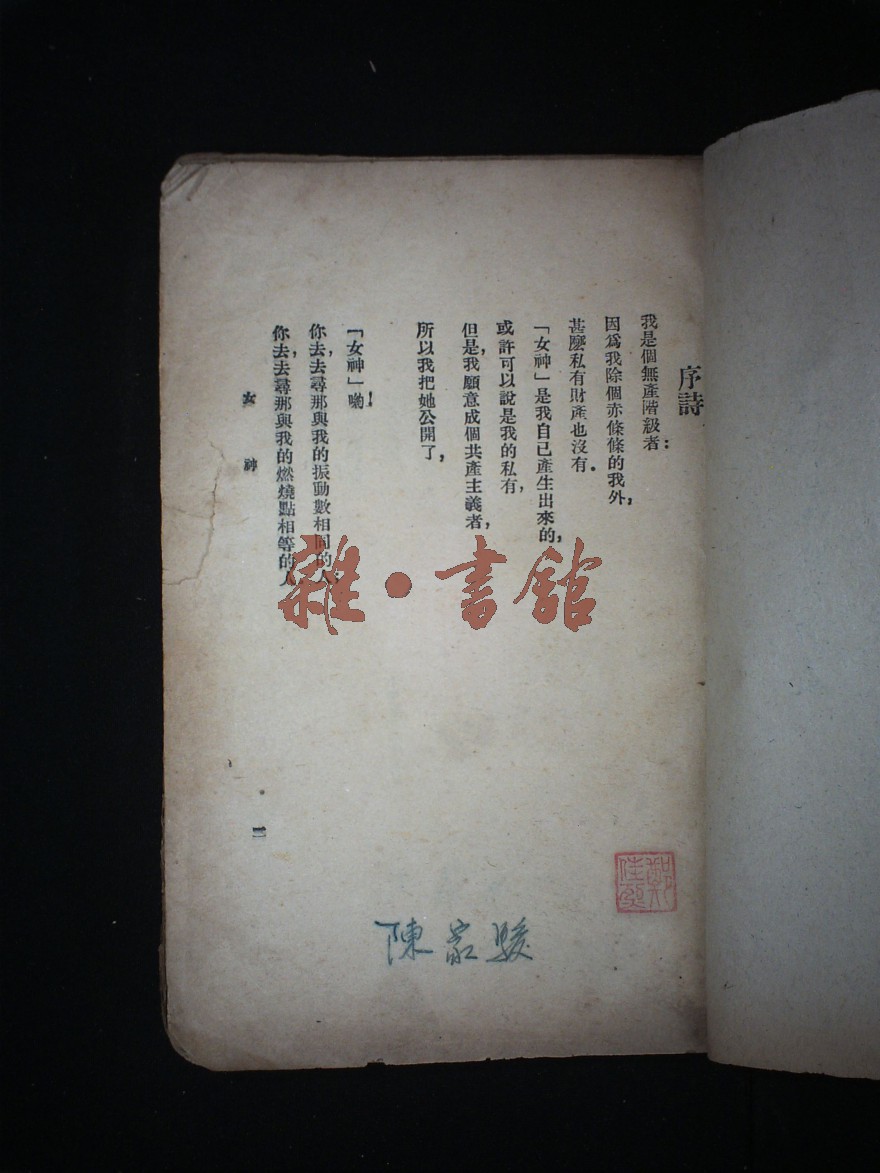 序詩
我是個無產階級者：
因爲我除個赤條條的我外，
甚麽私有財產也沒有。
「女神」是我自已產生出來的，
或許可以說是我的私有，
但是，我願意成個共產主義者，
所以我把她公開了，
「女神」喲！
你去，去尋那與我的振動數相同的人，
你去，去尋那與我的燃燒點相等的人
女神
雜·書館
陳家駿